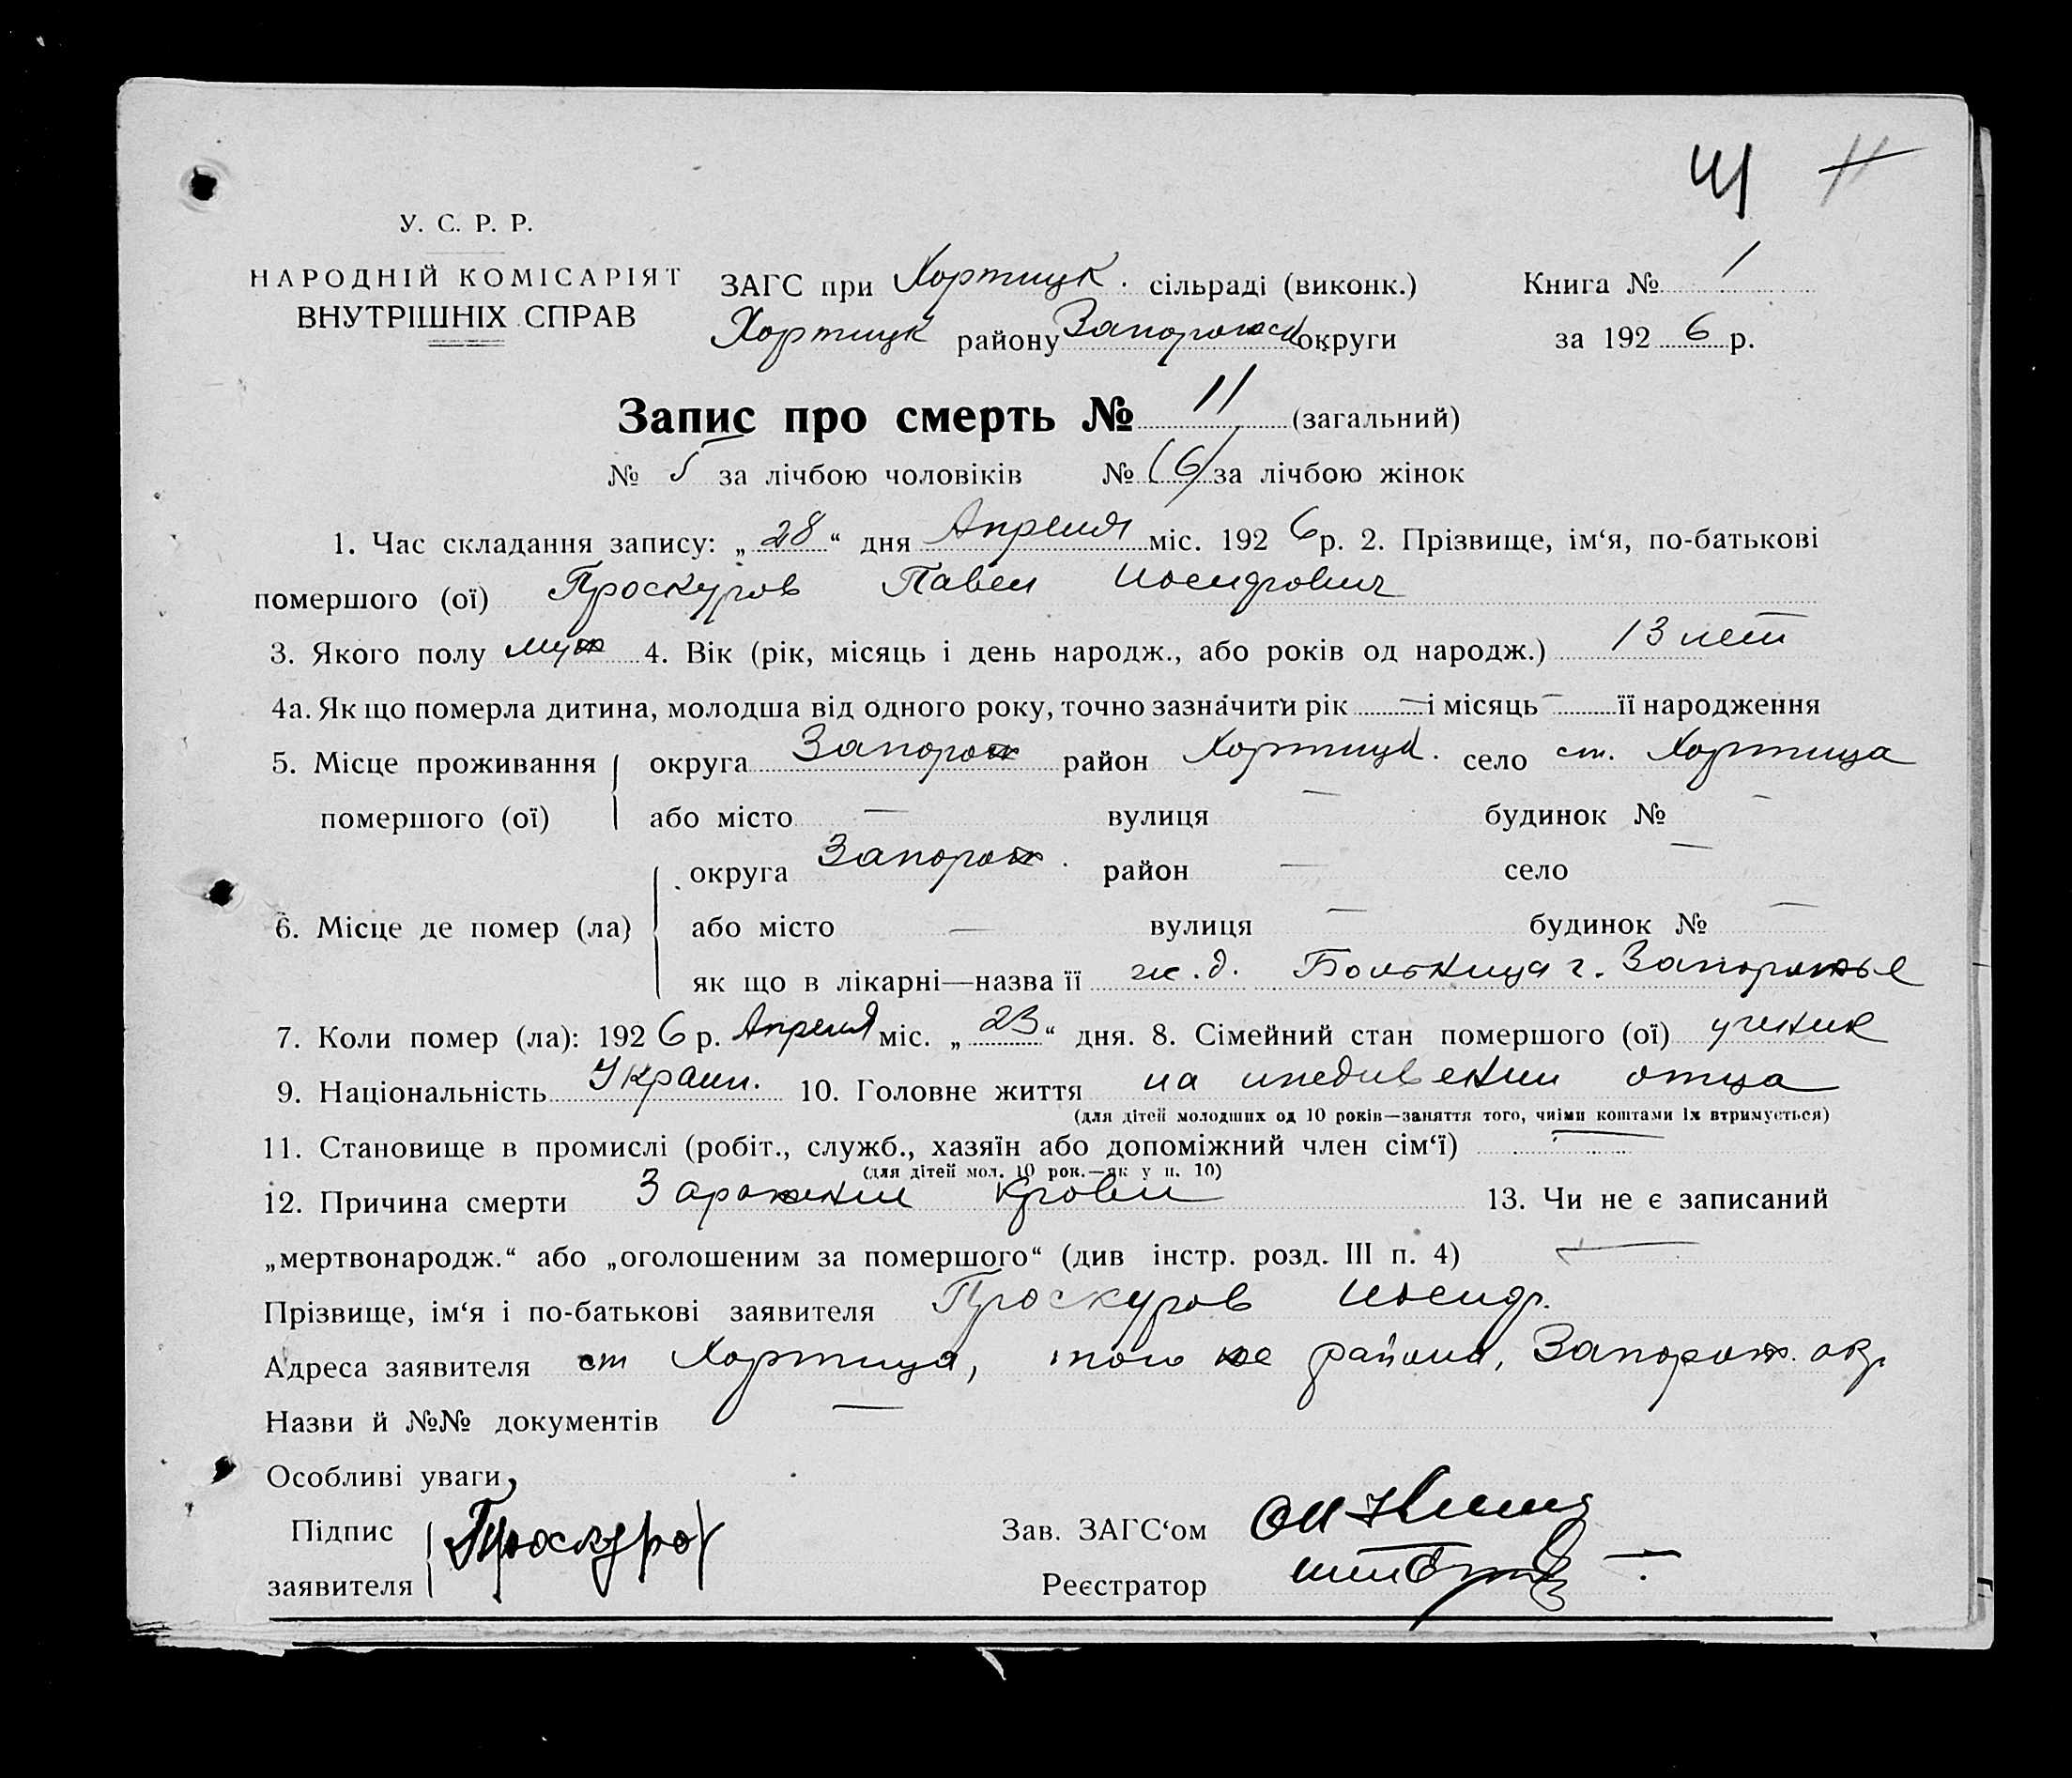 41 11
У. С. Р. Р.
НАРОДНІЙ КОМІСАРІЯТ
ВНУТРІШНІХ СПРАВ
ЗАГС при Хортицк. сільраді (виконк.)
Хортицк району Запорожск округи
Книга № 1
за 1926 р.
Запис про смерть № 11 (загальний)
№ 5 за лічбою чоловіків № (6) за лічбою жінок
1. Час складання запису: „28“ дня Апреля міс. 1926 р. 2. Прізвище, ім‘я, по-батькові
помершого (ої) Проскуров Павел Иосифович
3. Якого полу муж 4. Вік (рік, місяць і день народж., або років од народж.) 13 лет
4а. Як що померла дитина, молодша від одного року, точно зазначити рік — і місяць — її народження
5. Місце проживання округа Запорож район Хортицк. село ст. Хортица
помершого (ої) або місто — вулиця — будинок № —
округа Запорож. район — село —
6. Місце де помер (ла) або місто — вулиця — будинок № —
як що в лікарні—назва її ж.д. Больница г. Запорожье
7. Коли помер (ла): 1926 р. Апреля міс. „23“ дня. 8. Сімейний стан помершого (ої) ученик
9. Національність Украин. 10. Головне життя на иждивении отца
(для дітей молодших од 10 років—заняття того, чиїми коштами їх втримується)
11. Становище в промислі (робіт., служб., хазяїн або допоміжний член сім‘ї) —
(для дітей мол. 10 рок.—як у п. 10)
12. Причина смерти Заражение крови 13. Чи не є записаний
„мертвонародж.“ або „оголошеним за помершого“ (див інстр. розд. III п. 4) —
Прізвище, ім‘я і по-батькові заявителя Проскуров Иосиф.
Адреса заявителя ст Хортица, того же района, Запорож. окр.
Назви й №№ документів —
Особливі уваги
Підпис
заявителя Проскуров
Зав. ЗАГС‘ом
Реєстратор